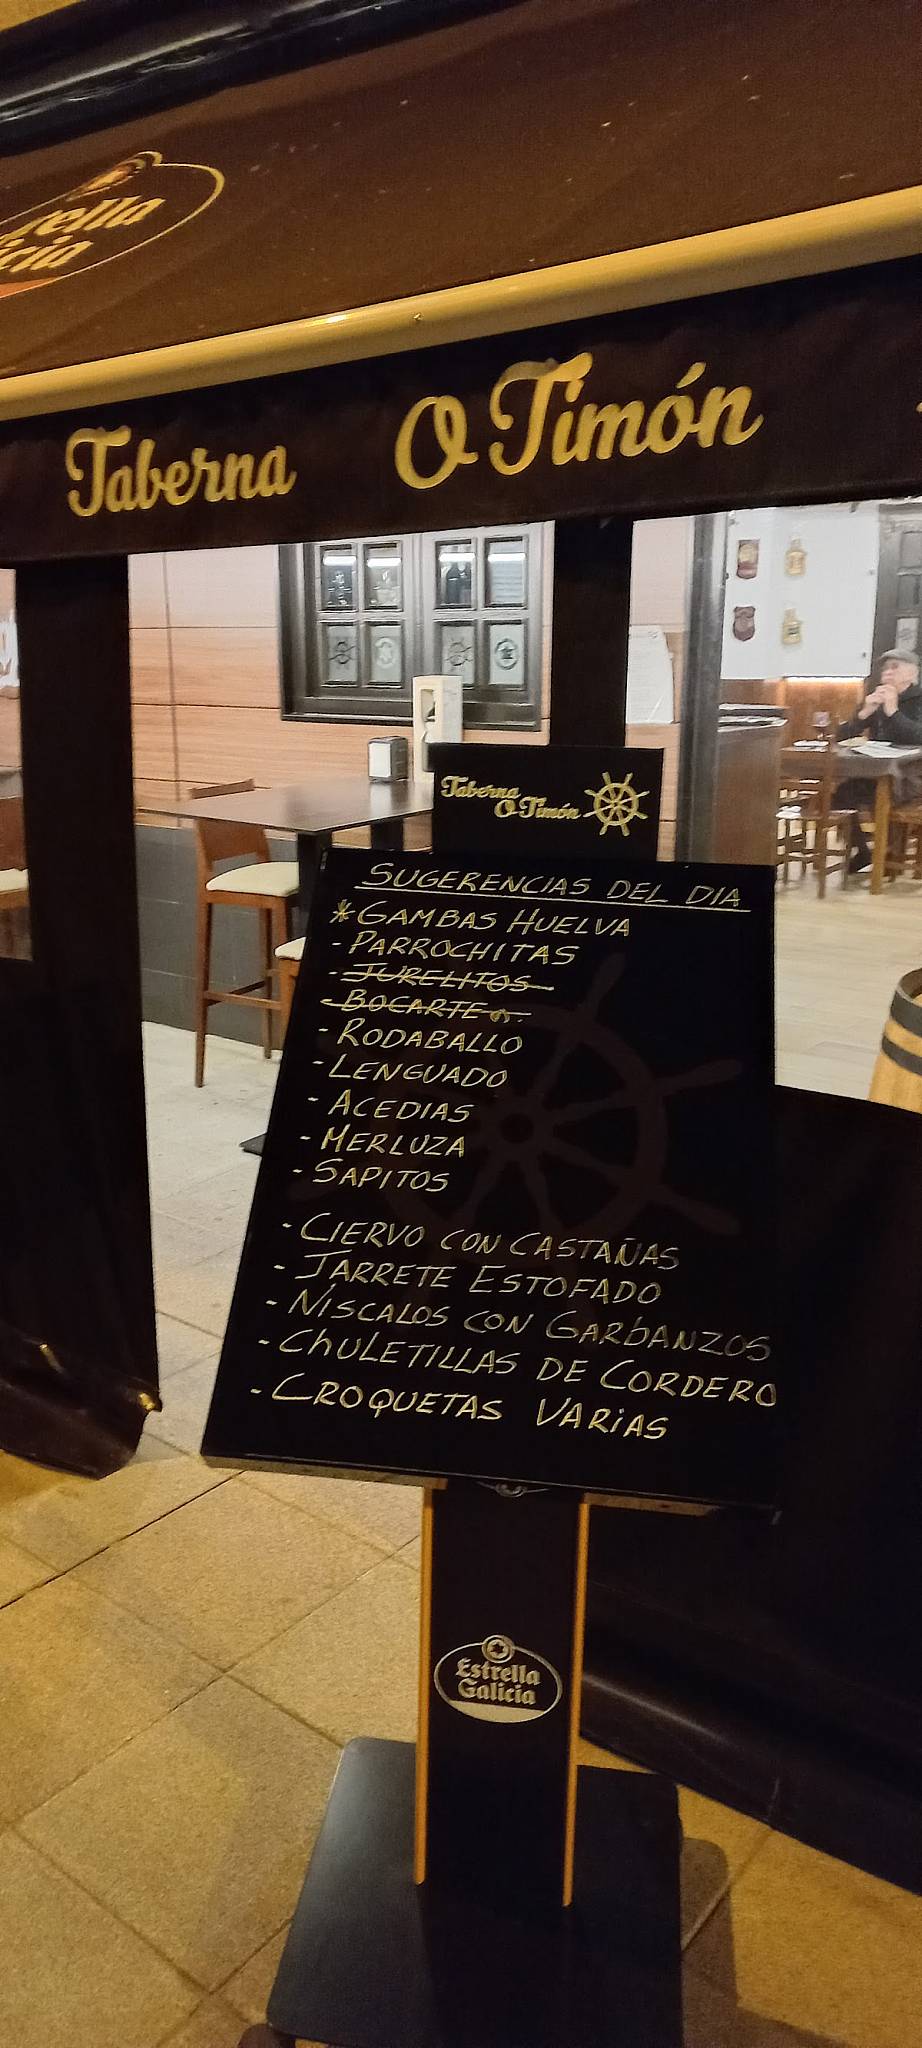 rella
icia
Taberna O Timón
Taberna
O Timón
SUGERENCIAS DEL DIA
* GAMBAS HUELVA
- PARROCHITAS
- JURELITOS
- BOCARTE
- RODABALLO
- LENGUADO
- ACEDIAS
- MERLUZA
- SAPITOS
- CIERVO CON CASTAÑAS
- JARRETE ESTOFADO
- NISCALOS CON GARBANZOS
- CHULETILLAS DE CORDERO
- CROQUETAS VARIAS
Estrella
Galicia